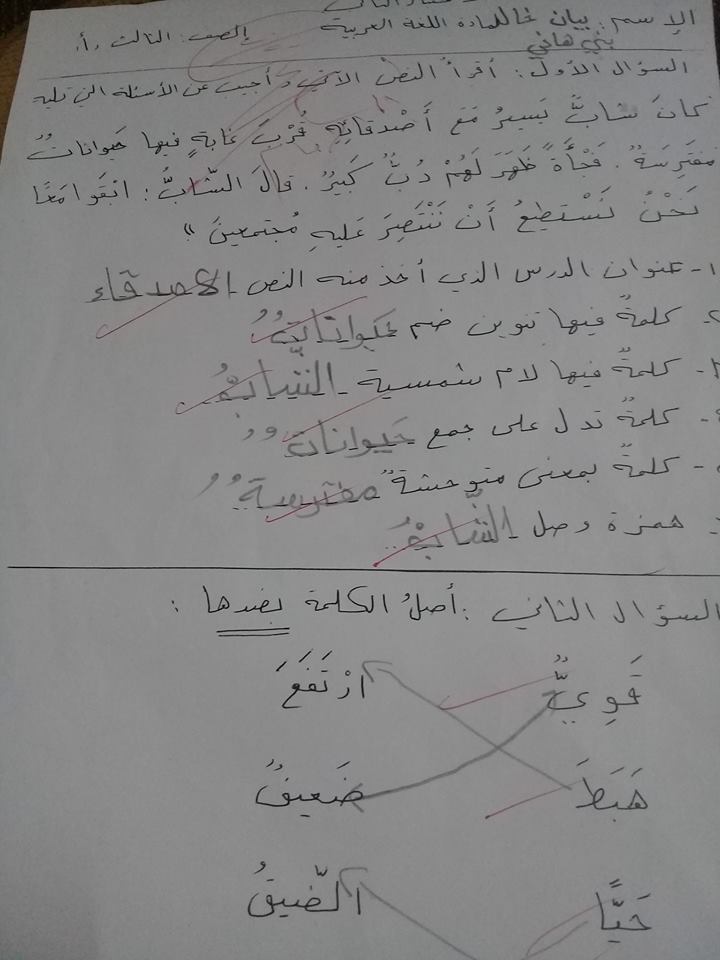 الإسم: بيان خالد مادة اللغة العربية الصف: الثالث "أ"
بني هاني
السؤال الأول: أقرأ النص الآتي وأجيب عن الأسئلة التي تليه
"كانَ شابٌّ يَسيرُ مَعَ أَصْدقائِهِ قُرْبَ غابةٍ فيها حَيواناتٌ
مفتَرِسَةٌ. فَجْأَةً ظَهَرَ لَهُمْ دُبٌّ كَبيرٌ. قالَ الشّابُّ: ابْقَوا مَعًا
نَحْنُ نَسْتَطيعُ أَنْ نَنْتَصِرَ عَليهِ مُجتمعينَ"
١- عنوان الدرس الذي أخذ منه النص الاصدقاء
٢- كلمةٌ فيها تنوين ضم حيواناتٌ
٣- كلمةٌ فيها لام شمسية الشّابُّ
- كلمةٌ تدل على جمع حيواناتٌ
- كلمةٌ بمعنى متوحشةٌ مفترسةٌ
- همزة وصل الشّابُّ
السؤال الثاني: أصلُ الكلمة بضدها:
قَوِيٌّ ارْتَفَعَ
هَبَطَ ضَعيفٌ
حَيًّا الضّيقُ